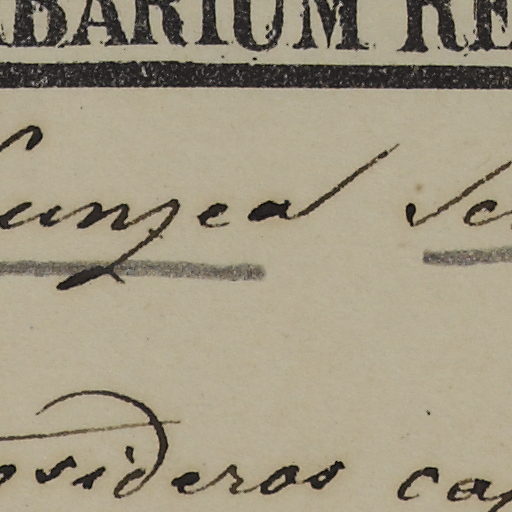 BARIUM RE
unzea Sc
osideros ca